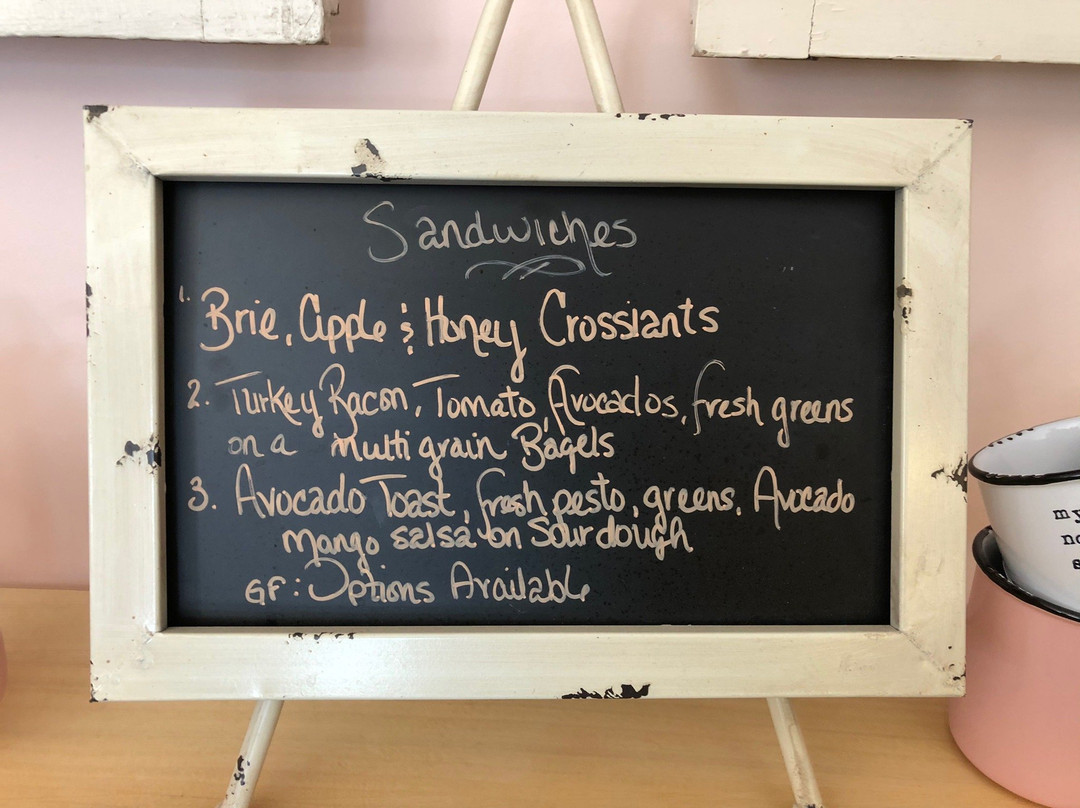 Sandwiches
1. Brie, Apple & Honey Crossiants
2. Turkey Bacon, Tomato, Avocados, fresh greens
on a multi grain Bagels
3. Avocado Toast, fresh pesto, greens, Avocado
Mango salsa on Sourdough
GF: Options Available
my